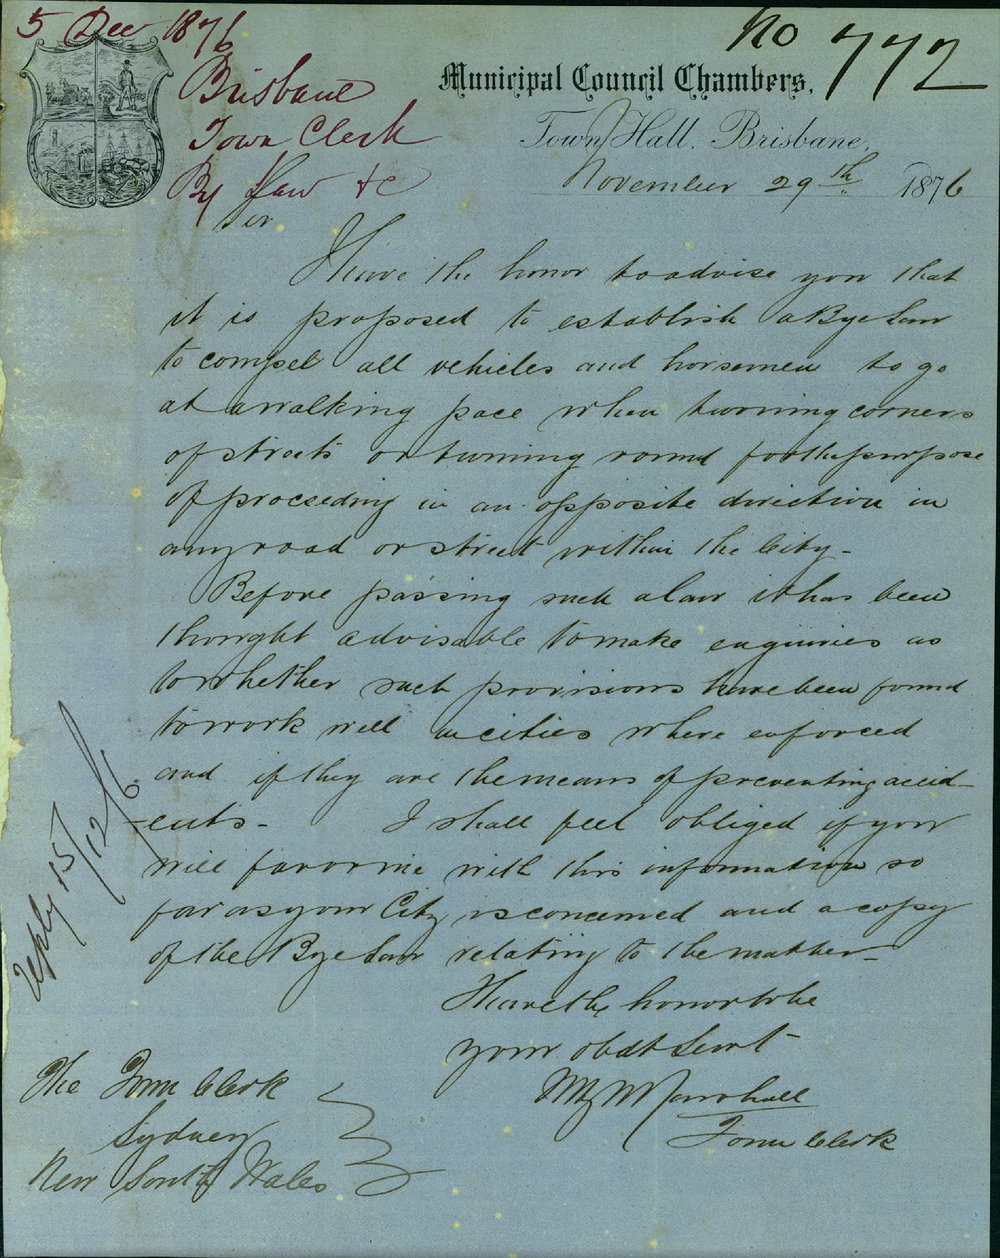 5 Dec 1876
Brisbane
Town Clerk
By Law &c
No 772
Municipal Council Chambers,
Town Hall, Brisbane,
November 29th 1876
Sir
I have the honor to advise you that
it is proposed to establish a Bye Law
to compel all vehicles and horsemen to go
at a walking pace when turning corners
of streets or turning round for the purpose
of proceeding in an opposite direction in
any road or street within the City -
Before passing such a law it has been
thought advisable to make enquiries as
to whether such provisions have been found
to work well in cities where enforced
and if they are the means of preventing accid-
-ents - I shall feel obliged if you
will favor me with this information so
far as your City is concerned and a copy
of the Bye Law relating to the matter -
I have the honor to be
your obdt Servt
Marshall
Town Clerk
The Town Clerk
Sydney
New South Wales
reply 15/12/6